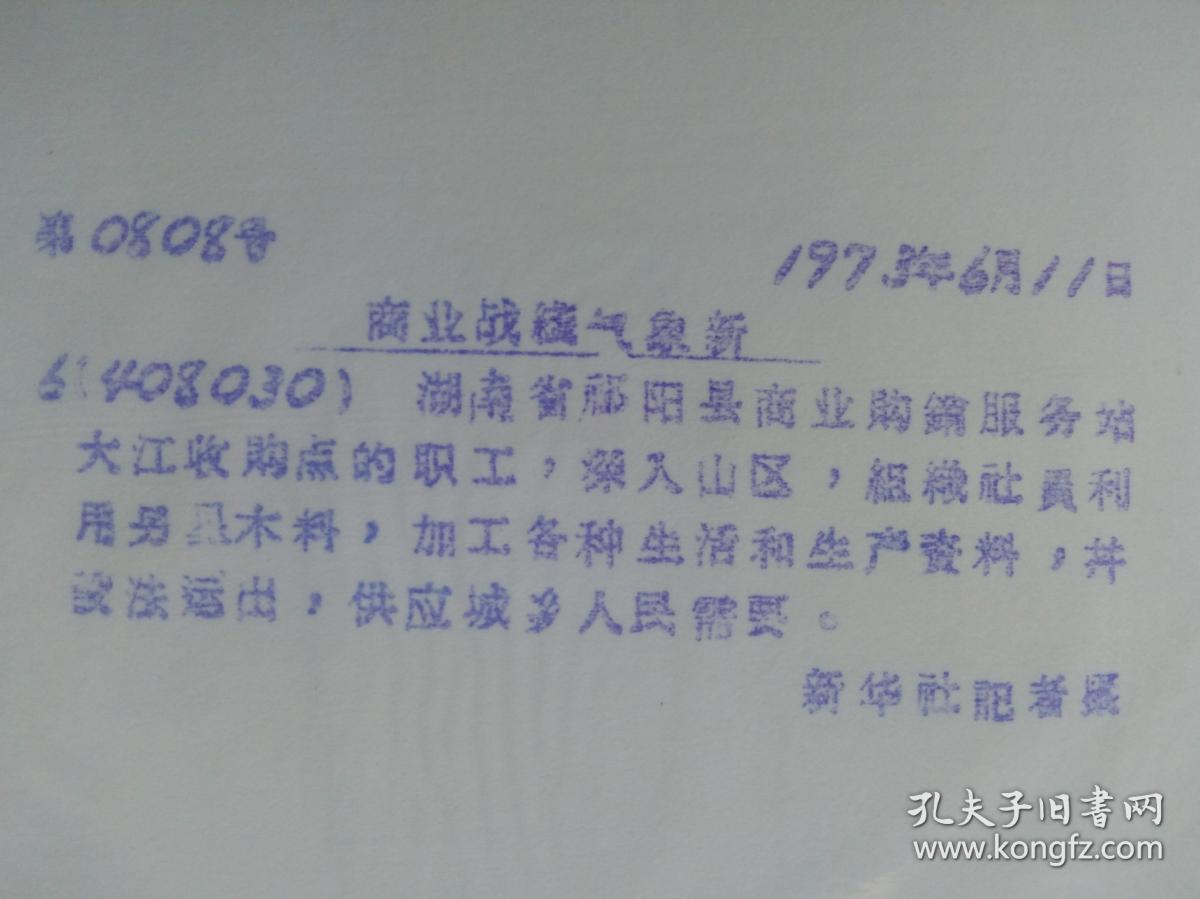 第0808号
1973年6月11日
商业战线气象新
6(408030) 湖南省祁阳县商业购銷服务站
大江收购点的职工，深入山区，組織社員利
用另星木料，加工各种生活和生产资料，并
设法运出，供应城乡人民需要。
新华社記者摄
孔夫子旧书网
www.kongfz.com